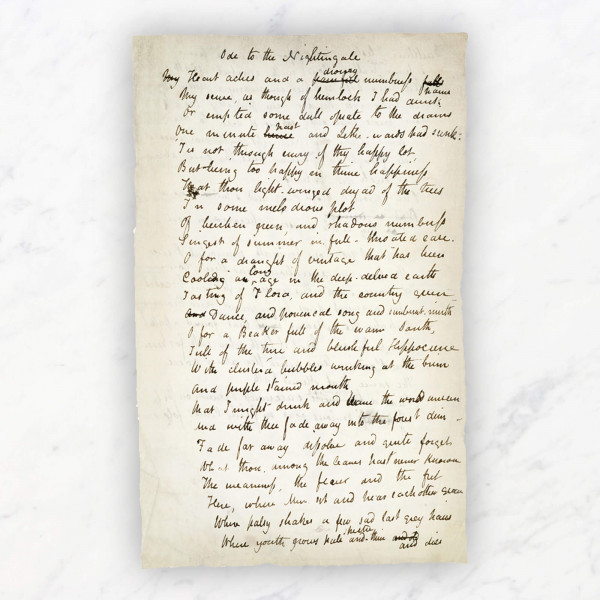 Ode to the Nightingale
My Heart aches and a painful drowsy numbness falls pains
My sense, as though of hemlock I had drunk
Or emptied some dull opiate to the drains
One minute hence past and Lethe-wards had sunk:
Tis not through envy of thy happy lot
But being too happy in thine happiness
That thou light-winged dryad of the trees
In some melodious plot
Of beechen green, and shadows numberless
Singest of summer in full-throated ease.
O for a draught of vintage that has been
Cooling an long age in the deep-delved earth
Tasting of Flora, and the country green
And Dance, and provencal song and sunburnt mirth
O for a Beaker full of the warm South,
Full of the true and blushful Hippocrene
With cluster'd bubbles winking at the brim
And purple stained mouth
That I might drink and leave the world unseen
And with thee fade away into the forest dim -
Fade far away dissolve and quite forget
What thou among the leaves hast never known
The weariness, the fever and the fret
Here, where Men sit and hear each other groan
Where palsy shakes a few sad last grey hairs
Where youth grows pale and thin and old and dies